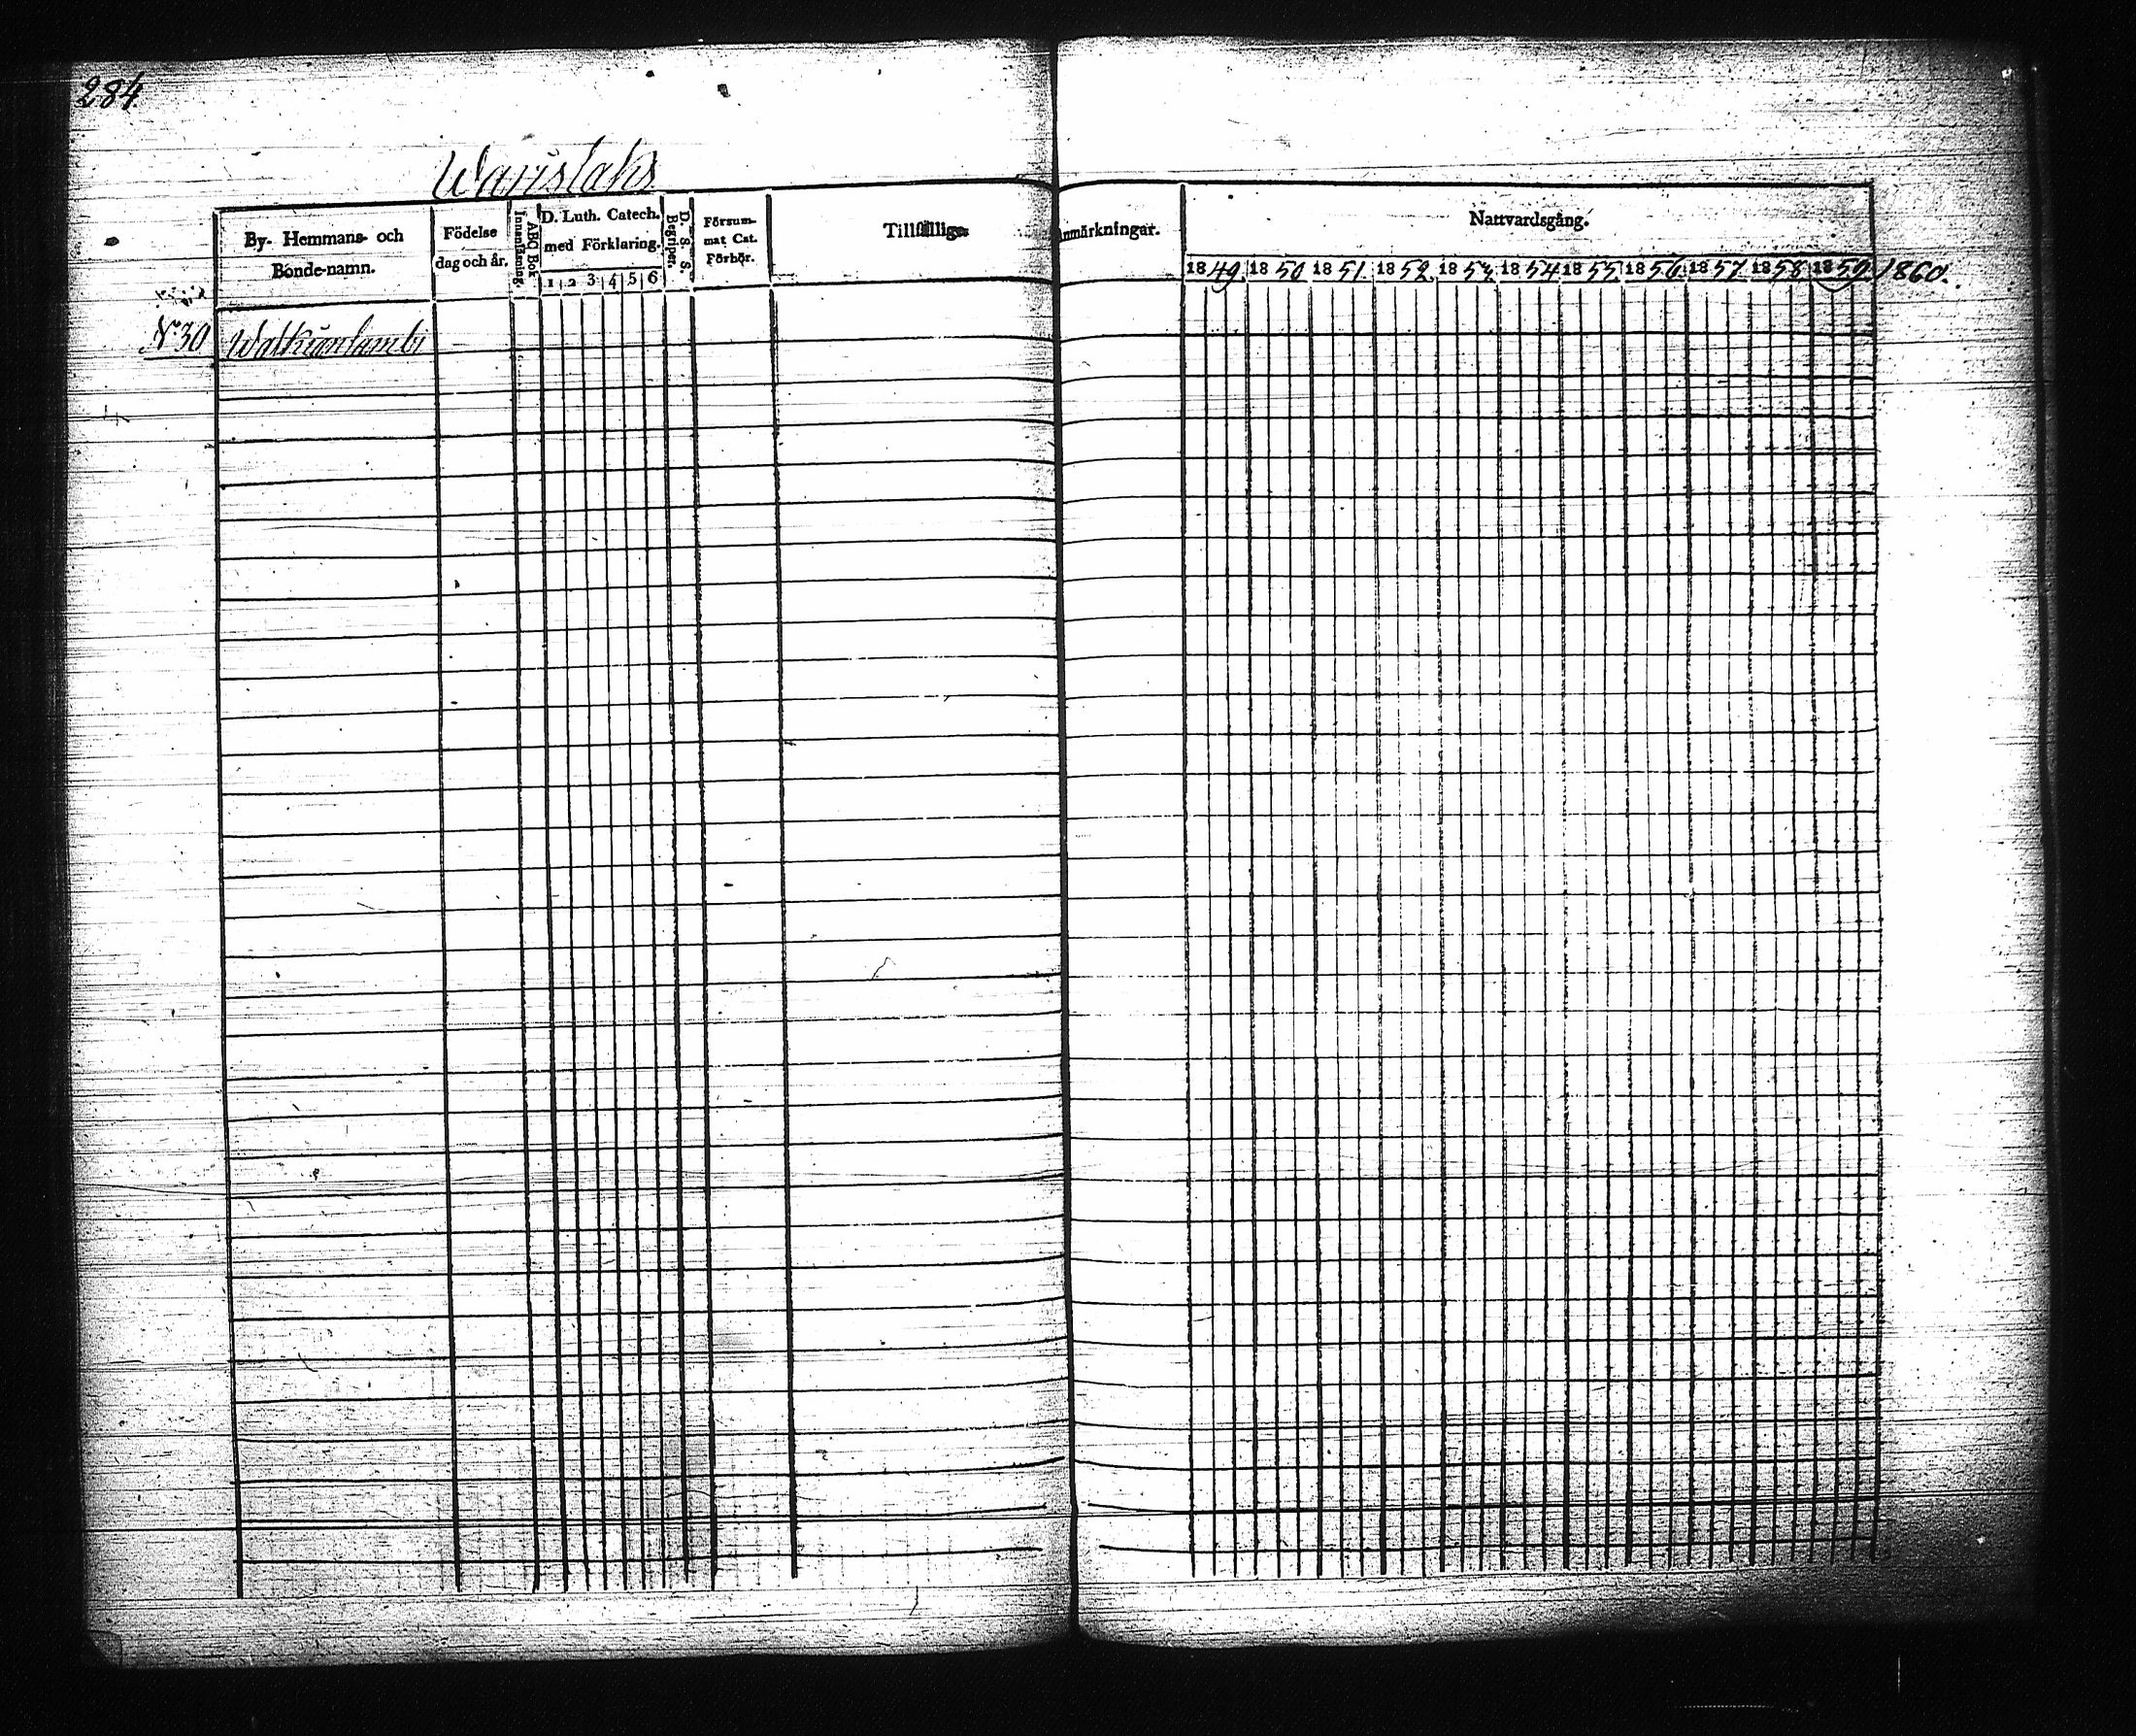 284
Warislaks
By- Hemmans- och
Bonde-namn.
Födelse
dag och år.
ABC Bok
Innanläsning.
D. Luth. Catech.
med Förklaring.
1 2 3 4 5 6
D. S. S.
Begriper.
Försum-
mat Cat.
Förhör.
Tillfällige
Anmärkningar.
Nattvardsgång.
1849. 1850 1851. 1852. 1853. 1854 1855. 1856. 1857. 1858. 1859. 1860.
N:30 Walkianlambi